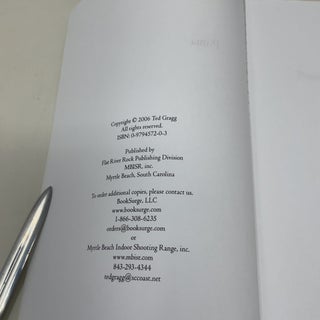 Copyright © 2006 Ted Gragg
All rights reserved.
ISBN: 0-9794572-0-3
Published by
Flat River Rock Publishing Division
MBISR, inc.
Myrtle Beach, South Carolina
To order additional copies, please contact us.
BookSurge, LLC
www.booksurge.com
1-866-308-6235
orders@booksurge.com
or
Myrtle Beach Indoor Shooting Range, inc.
www.mbisr.com
843-293-4344
tedgragg@sccoast.net